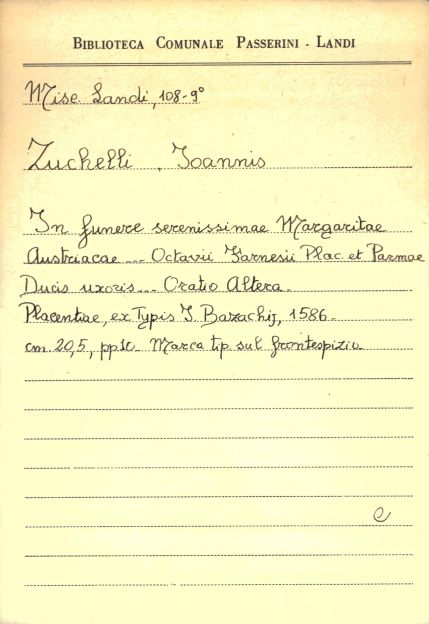 BIBLIOTECA COMUNALE PASSERINI - LANDI
Misc. Landi, 108-9°
Zuchelli, Joannis
In funere serenissimae Margaritae
Austriacae --- Octavii Farnesii Plac. et Parmae
Ducis uxoris --- Oratio Altera.
Placentiae, ex Typis J. Bazachij, 1586.
cm. 20,5, pp. 10. Marca tip. sul frontespizio
e